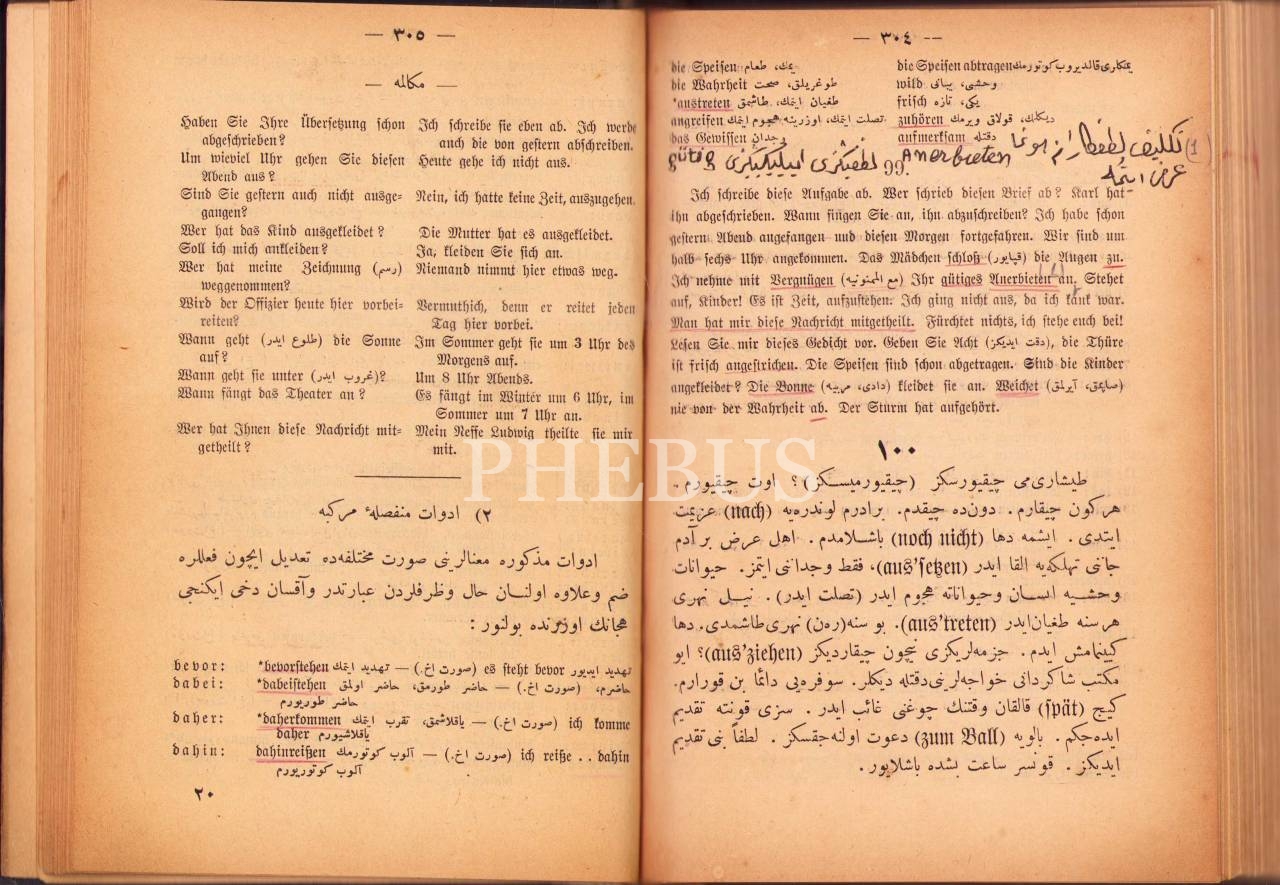 — ٣٠٤ —
die Speisen يمك، طعام
die Speisen abtragen يمكلرى قالديروب كوتورمك
die Wahrheit طوغريلق، صحت
wild وحشى، يبانى
*austreten طغيان ايتمك، طاشمق
frisch يكى، تازه
angreifen تصلت ايتمك، اوزرينه هجوم ايتمك
zuhören ديكلمك، قولاق ويرمك
das Gewissen وجدان
aufmerksam دقتله
Anerbieten
99.
Ich schreibe diese Aufgabe ab. Wer schrieb diesen Brief ab? Karl hat
ihn abgeschrieben. Wann fingen Sie an, ihn abzuschreiben? Ich habe schon
gestern Abend angefangen und diesen Morgen fortgefahren. Wir sind um
halb sechs Uhr angekommen. Das Mädchen schloß (قپايور) die Augen zu.
Ich nehme mit Vergnügen (مع الممنونيه) Ihr gütiges Anerbieten an. Stehet
auf, Kinder! Es ist Zeit, aufzustehen. Ich ging nicht aus, da ich krank war.
Man hat mir diese Nachricht mitgetheilt. Fürchtet nichts, ich stehe euch bei!
Lesen Sie mir dieses Gedicht vor. Geben Sie Acht (دقت ايديكز), die Thüre
ist frisch angestrichen. Die Speisen sind schon abgetragen. Sind die Kinder
angekleidet? Die Bonne (دادى، مربيه) kleidet sie an. Weichet (صاپمق، آيرلق)
nie von der Wahrheit ab. Der Sturm hat aufgehört.
١٠٠
طيشارى مى چيقيورسكز (چيقيورميسكز)؟ اوت چيقيورم.
هر كون چيقارم. دون ده چيقدم. برادرم لوندره يه (nach) عزيمت
ايتدى. ايشمه دها (noch nicht) باشلامدم. اهل عرض بر آدم
جاننى تهلكه يه القا ايدر (aus'setzen)، فقط وجداننى ايتمز. حيوانات
وحشيه انسان وحيواناته هجوم ايدر (تصلت ايدر). نيل نهرى
هر سنه طغيان ايدر (aus'treten). بو سنه (رهن) نهرى طاشمدى. دها
كيينمامش ايدم. جزمه لريكزى نيچون چيقارديكز (aus'ziehen)؟ ايو
مكتب شاكردانى خواجه لرينى دقتله ديكلر. سوفره يى دائما بن قورارم.
كيج (spät) قالقان وقتنك چوغنى غائب ايدر. سزى قونته تقديم
ايده جكم. بالويه (zum Ball) دعوت اولنه جقسكز. لطفاً بنى تقديم
ايديكز. قونسر ساعت بشده باشلايور.
— ٣٠٥ —
— مكالمه —
Haben Sie Ihre Übersetzung schon
abgeschrieben?
Ich schreibe sie eben ab. Ich werde
auch die von gestern abschreiben.
Um wieviel Uhr gehen Sie diesen
Abend aus?
Heute gehe ich nicht aus.
Sind Sie gestern auch nicht ausge-
gangen?
Nein, ich hatte keine Zeit, auszugehen.
Wer hat das Kind ausgekleidet?
Die Mutter hat es ausgekleidet.
Soll ich mich ankleiden?
Ja, kleiden Sie sich an.
Wer hat meine Zeichnung (رسم)
weggenommen?
Niemand nimmt hier etwas weg.
Wird der Offizier heute hier vorbei-
reiten?
Vermuthich, denn er reitet jeden
Tag hier vorbei.
Wann geht (طلوع ايدر) die Sonne
auf?
Im Sommer geht sie um 3 Uhr des
Morgens auf.
Wann geht sie unter (غروب ايدر)?
Um 8 Uhr Abends.
Wann fängt das Theater an?
Es fängt im Winter um 6 Uhr, im
Sommer um 7 Uhr an.
Wer hat Ihnen diese Nachricht mit-
getheilt?
Mein Neffe Ludwig theilte sie mir
mit.
٢) ادوات منفصلهٔ مركبه
ادوات مذكوره معنالرينى صورت مختلفه ده تعديل ايچون فعللره
ضم وعلاوه اولنان حال وظرفلردن عبارتدر وآقسان دخى ايكنجى
هجانك اوزرنده بولنور:
bevor: *bevorstehen تهديد ايتمك — (صورت اخ.) es steht bevor تهديد ايديور
dabei: *dabeistehen حاضر طورمق، حاضر اولمق — (صورت اخ.) حاضرم،
حاضر طوريورم
daher: *daherkommen ياقلاشمق، تقرب ايتمك — (صورت اخ.) ich komme
daher ياقلاشيورم
dahin: dahinreißen آلوب كوتورمك — (صورت اخ.) ich reiße .. dahin
آلوب كوتوريورم
٢٠
PHEBUS